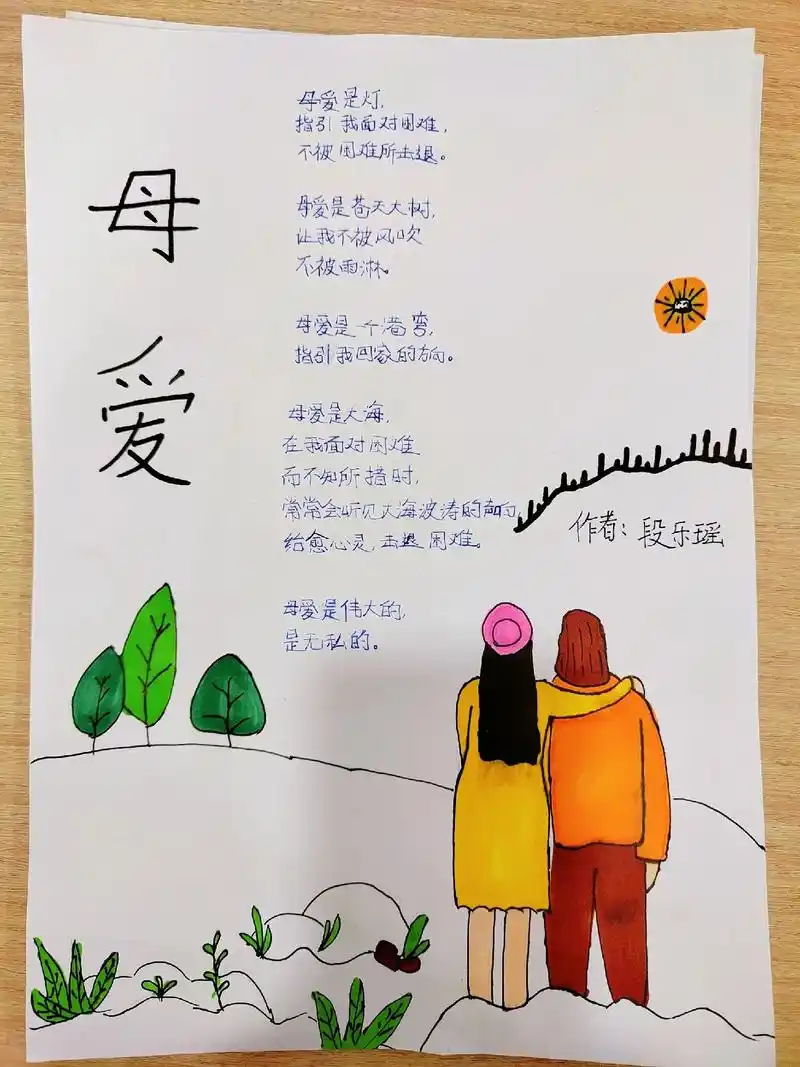 母爱
母爱是灯,
指引我面对困难,
不被困难所击退。
母爱是苍天大树,
让我不被风吹
不被雨淋。
母爱是一个港弯,
指引我回家的方向。
母爱是大海,
在我面对困难
而不知所措时,
常常会听见大海波涛的声响,
给愈心灵,击退困难。
母爱是伟大的,
是无私的。
作者:段乐瑶